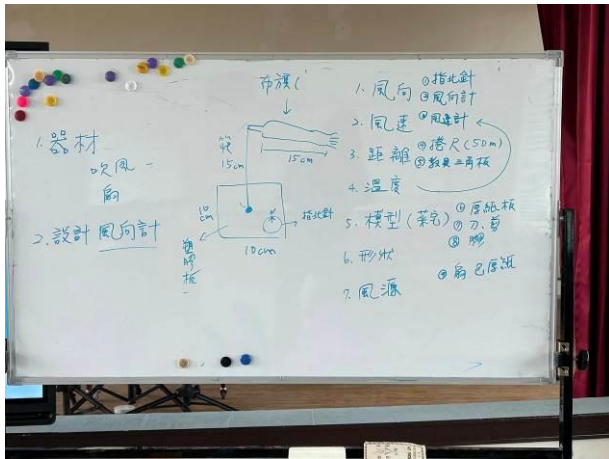 1. 器材
吹風
扇
2. 設計 風向計
布旗(
15cm
15cm
10
cm
10cm
塑膠板
指北針
1. 風向 ①指北針
②風向計
2. 風速 ③風速計
3. 距離 ④捲尺(50m)
⑤教具三角板
4. 溫度
5. 模型(菜宅) ⑥厚紙板
⑦刀、剪
⑧膠
6. 形狀
⑨扇
厚紙
7. 風源